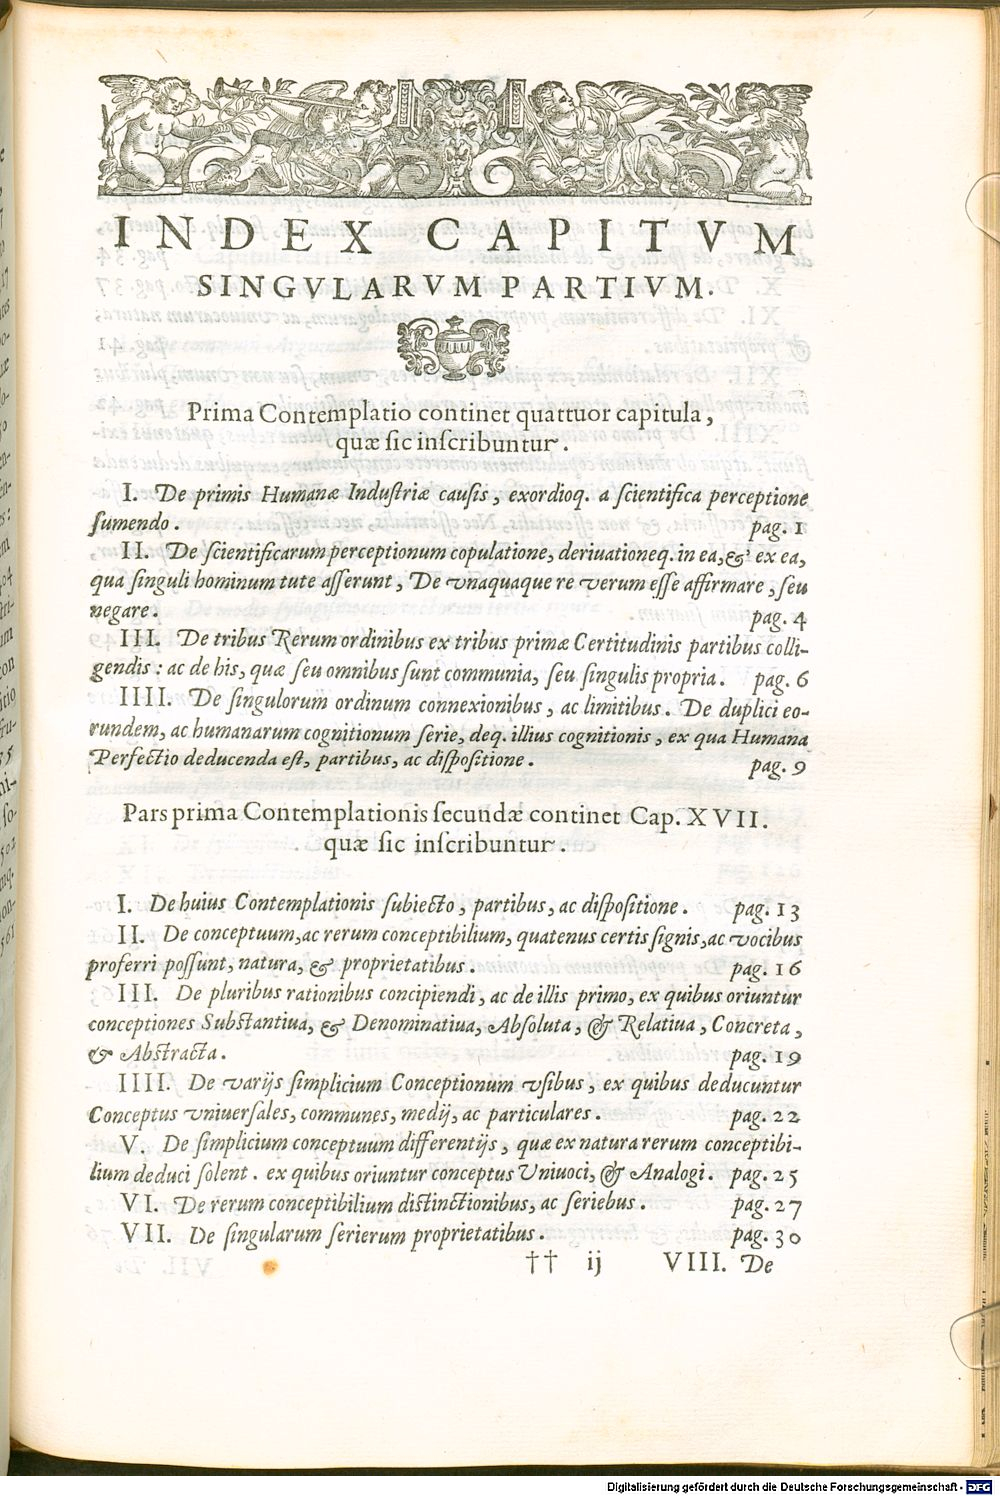 INDEX CAPITVM
SINGVLARVM PARTIVM.
Prima Contemplatio continet quattuor capitula,
quæ sic inscribuntur.
I. De primis Humanæ Industriæ causis, exordioq. a scientifica perceptione
sumendo. pag. 1
II. De scientificarum perceptionum copulatione, deriuationeq. in ea, & ex ea,
qua singuli hominum tute asserunt, De vnaquaque re verum esse affirmare, seu
negare. pag. 4
III. De tribus Rerum ordinibus ex tribus primæ Certitudinis partibus colli-
gendis: ac de his, quæ seu omnibus sunt communia, seu singulis propria. pag. 6
IIII. De singulorum ordinum connexionibus, ac limitibus. De duplici eo-
rundem, ac humanarum cognitionum serie, deq. illius cognitionis, ex qua Humana
Perfectio deducenda est, partibus, ac dispositione. pag. 9
Pars prima Contemplationis secundæ continet Cap. XVII.
quæ sic inscribuntur.
I. De huius Contemplationis subiecto, partibus, ac dispositione. pag. 13
II. De conceptuum, ac rerum conceptibilium, quatenus certis signis, ac vocibus
proferri possunt, natura, & proprietatibus. pag. 16
III. De pluribus rationibus concipiendi, ac de illis primo, ex quibus oriuntur
conceptiones Substantiua, & Denominatiua, Absoluta, & Relatiua, Concreta,
& Abstracta. pag. 19
IIII. De varijs simplicium Conceptionum vsibus, ex quibus deducuntur
Conceptus vniuersales, communes, medij, ac particulares. pag. 22
V. De simplicium conceptuum differentijs, quæ ex natura rerum conceptibi-
lium deduci solent. ex quibus oriuntur conceptus Vniuoci, & Analogi. pag. 25
VI. De rerum conceptibilium distinctionibus, ac seriebus. pag. 27
VII. De singularum serierum proprietatibus. pag. 30
†† ij VIII. De
Digitalisierung gefördert durch die Deutsche Forschungsgemeinschaft - DFG